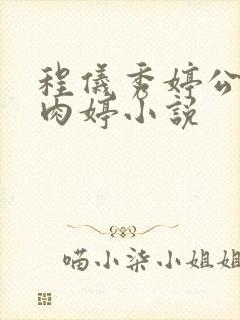 程儀秀婷公
肉婷小説
喵小柒小姐姐